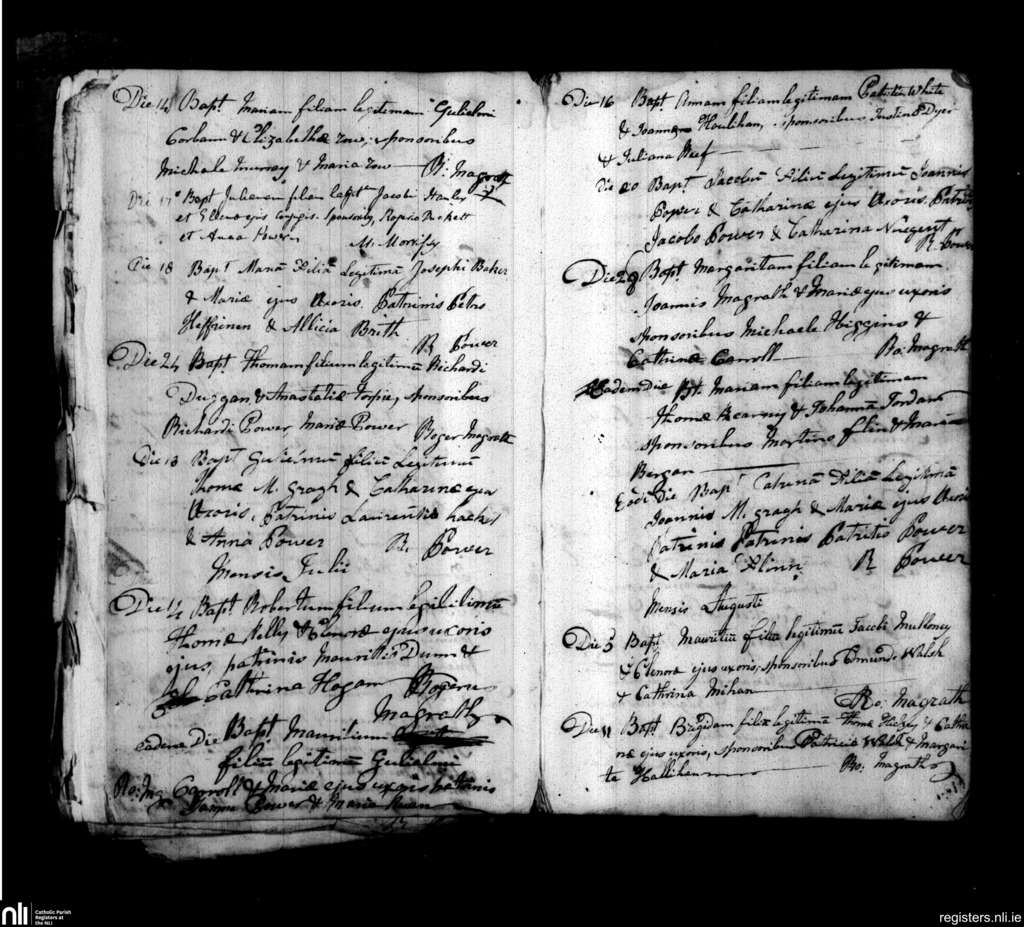 Die 14 Bapt. Mariam filiam legitimam Gulielmi
Corban & Elizabethæ Tow, sponsoribus
Michale Murray & Maria Tow R: Magrath
Die 17º Bapt Julianam filiam legit^m Jacobi Hanley
et Elleno ejus conjugis. Sponsoribus, Rogerio Puckett
et Anna Power M. Morrissy
Die 18 Bapt Mariã Filiã Legitimã Josephi Baker
& Mariæ ejus Uxoris. Patrinis Petro
Heffrinen & Allicia Brith
R Power
Die 24 Bapt Thomam filium legitimũ Richardi
Duggan & Anastatiæ Torpie, sponsoribus
Richardi Power Mariæ Power Roger Magrath
Die 13 Bapt Guliełmũ filiũ Legitimũ
Thomæ M. gragh & Catharinæ ejus
Uxoris, Patrinis Laurentio hacket
& Anna Power R. Power
Mensis Julii
Die 14 Bapt Robertum filium legitimũ
Thomæ Kelly & Elenoræ ejus uxoris
ejus, patrinis Mauritio Dunn &
Catthrina Hogan Rogerus
Magrath
Eadem Die Bapt Mauritium
filiũ legitimũ Gulielmi
Ro: Mg. Carroll & Mariæ ejus uxoris patrinis
Power & Maria
Die 16 Bapt Annam filiam legitimam Patritii White
& Joannæ Houlihan, sponsoribus Justino Dyer
& Juliana Keef
Die 20 Bapt Jacobũ Filiũ Legitimũ Joannis
Power & Catharinæ ejus Uxoris, Patrinis
Jacobo Power & Catharina Nugent
R. Power
Die 28 Bapt Margaritam filiam legitimam
Joannis Magrath & Mariæ ejus uxoris
sponsoribus Michaele Higgins &
Cathrinæ Carroll Ro: Magrath
Eadem Die Bt. Mariam filiam legitimam
Thomæ Kearney & Johannã Jordan
sponsoribus Martino flin & Maria
Bergan
Eodē Die Bapt Catrinã Filiã Legitimã
Joannis M. gragh & Mariæ ejus Uxoris
Patrinis Patrinis Patritio Power
& Maria Flinn R Power
Mensis Augusti
Die 5 Bapt Mauritiũ filiũ legitimũ Jacobi Mullowney
& Elenora ejus uxoris, sponsoribus Edmundo Walsh
& Cathrina Mihan
Ro: Magrath
Die 11 Bapt Brigidam filiã legitimã Thomæ Hickey & Catha
næ ejus uxoris, sponsoribus Patricio Walsh & Margari
ta Hallihan Ro: Magrath
nli
Catholic Parish
Registers at
the NLI
registers.nli.ie